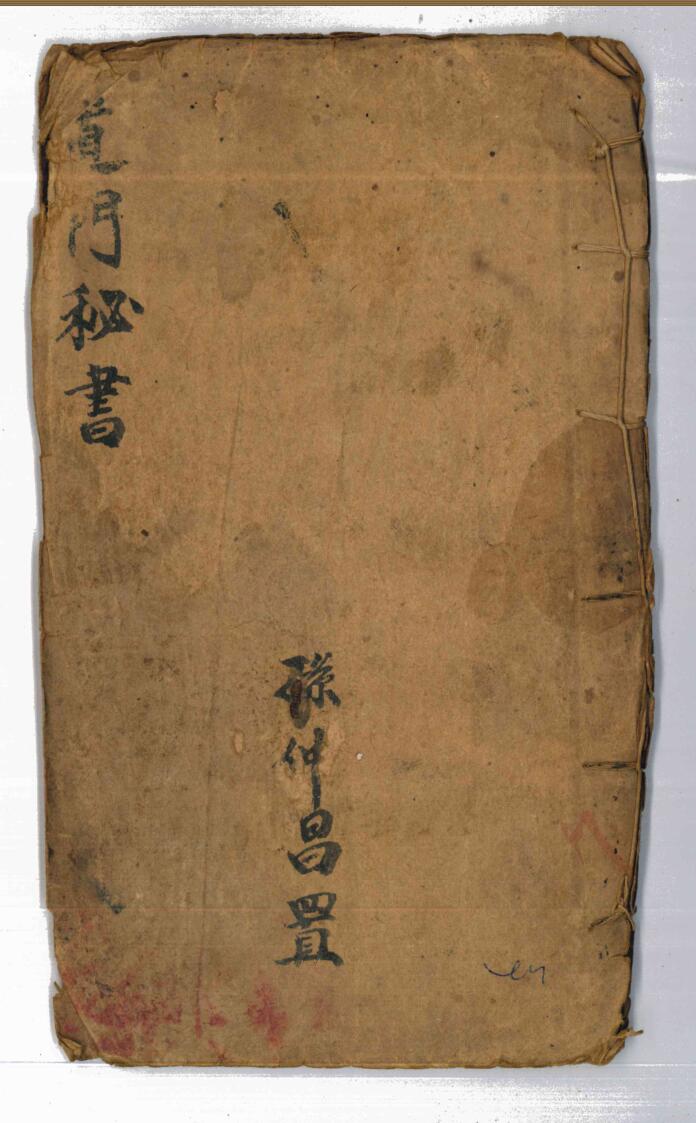 道门秘書
孫仲昌置